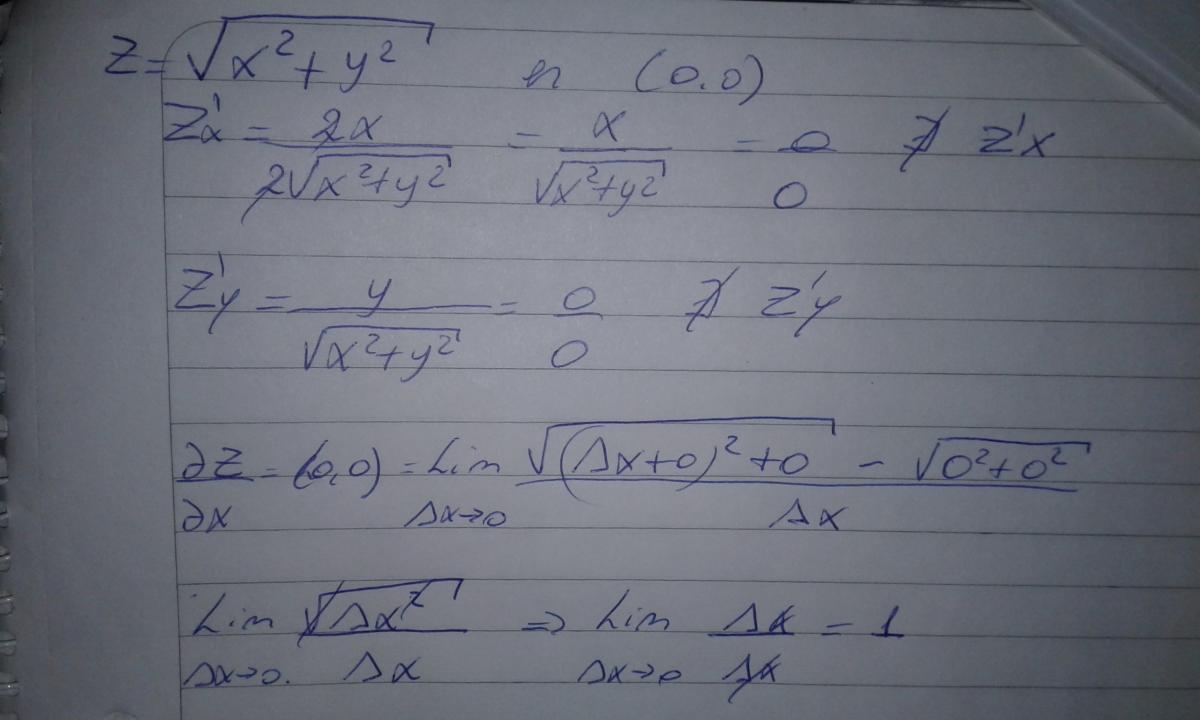 Z = √(x² + y²) en (0,0)
Z'x = 2x / 2√(x²+y²) = x / √(x²+y²) = 0/0 ∄ Z'x
Z'y = y / √(x²+y²) = 0/0 ∄ Z'y
∂Z/∂x = (0,0) = Lim Δx→0 (√((Δx+0)²+0) - √(0²+0²)) / Δx
Lim Δx→0. √(Δx²) / Δx ⇒ Lim Δx→0 Δx / Δx = 1